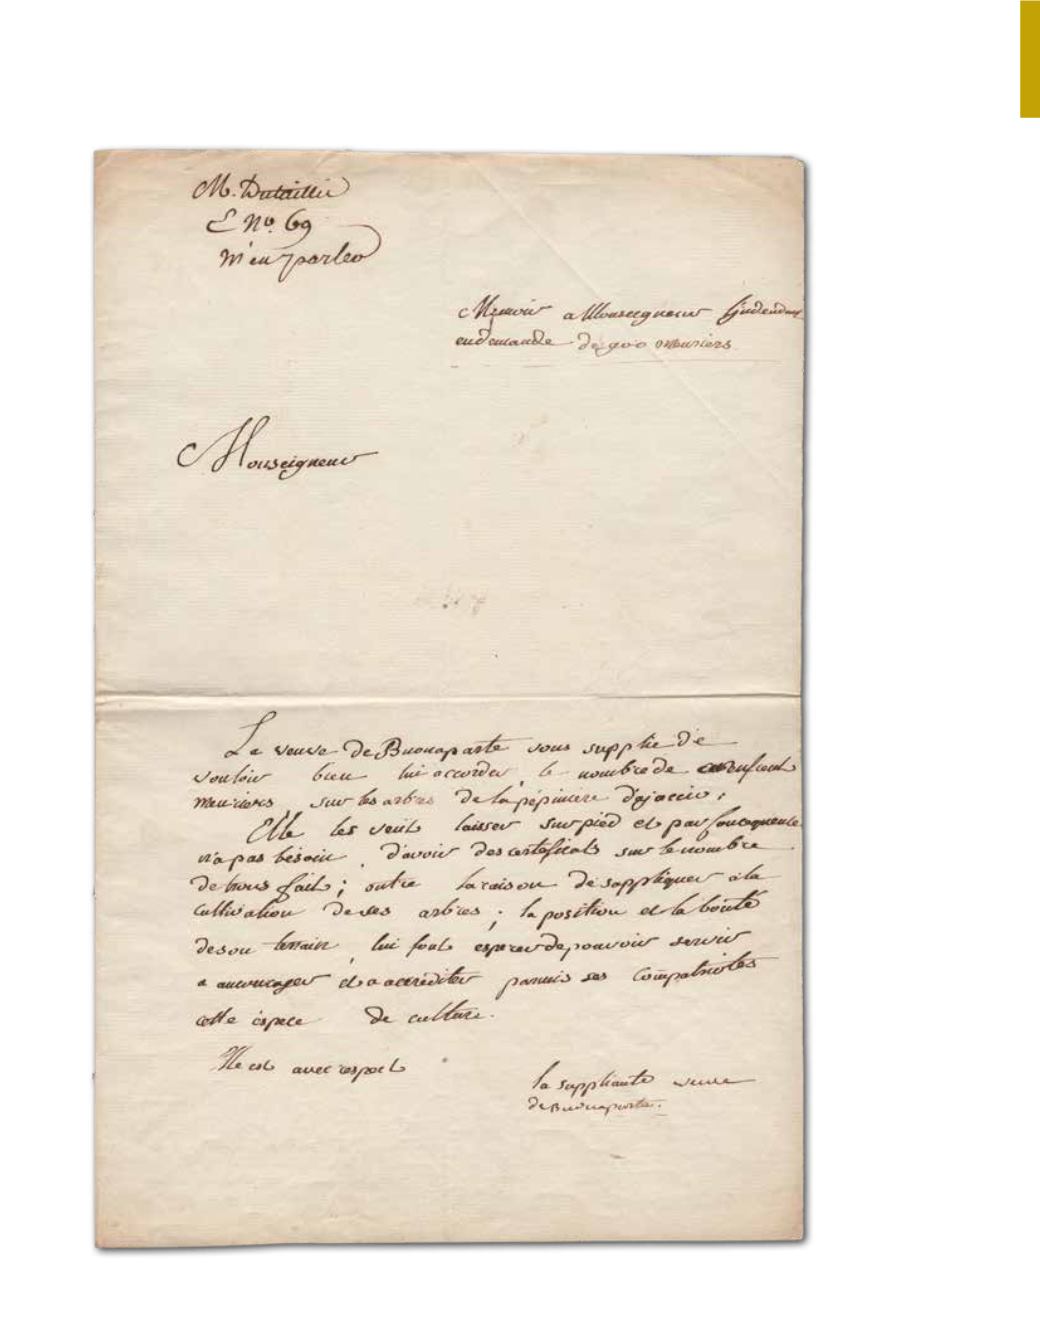 M. Dutaillie
E Nº. 69
m'en parler
Memoir a Monseigneur
en demande de 900 Muriers
Monseigneur
La veuve de Buonaparte vous supplie de
vouloir bien lui accorder, le nombre de
meuriers, sur les arbres de la pépiniere d'ajaccio;
Elle les veut laisser sur pied et par Consequente
n'a pas bésoin, d'avoir des certeficats sur le nombre
de trous fait; outre la raison de s'appliquer à la
cultivation de ses arbres; la position et la bonté
de son terrain, lui font esperer de pouvoir servir
a encourager et a accréditer parmis ses compatriotes
cette éspece de culture.
Ele est avec respect
la suppliante veuve
de Buonaparte.